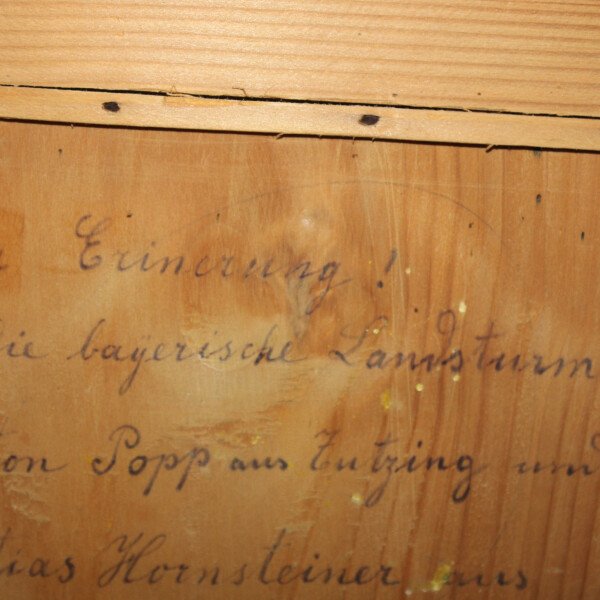 Erinerung!
die bayerische Landsturm
Popp aus Tutzing und
Hornsteiner aus